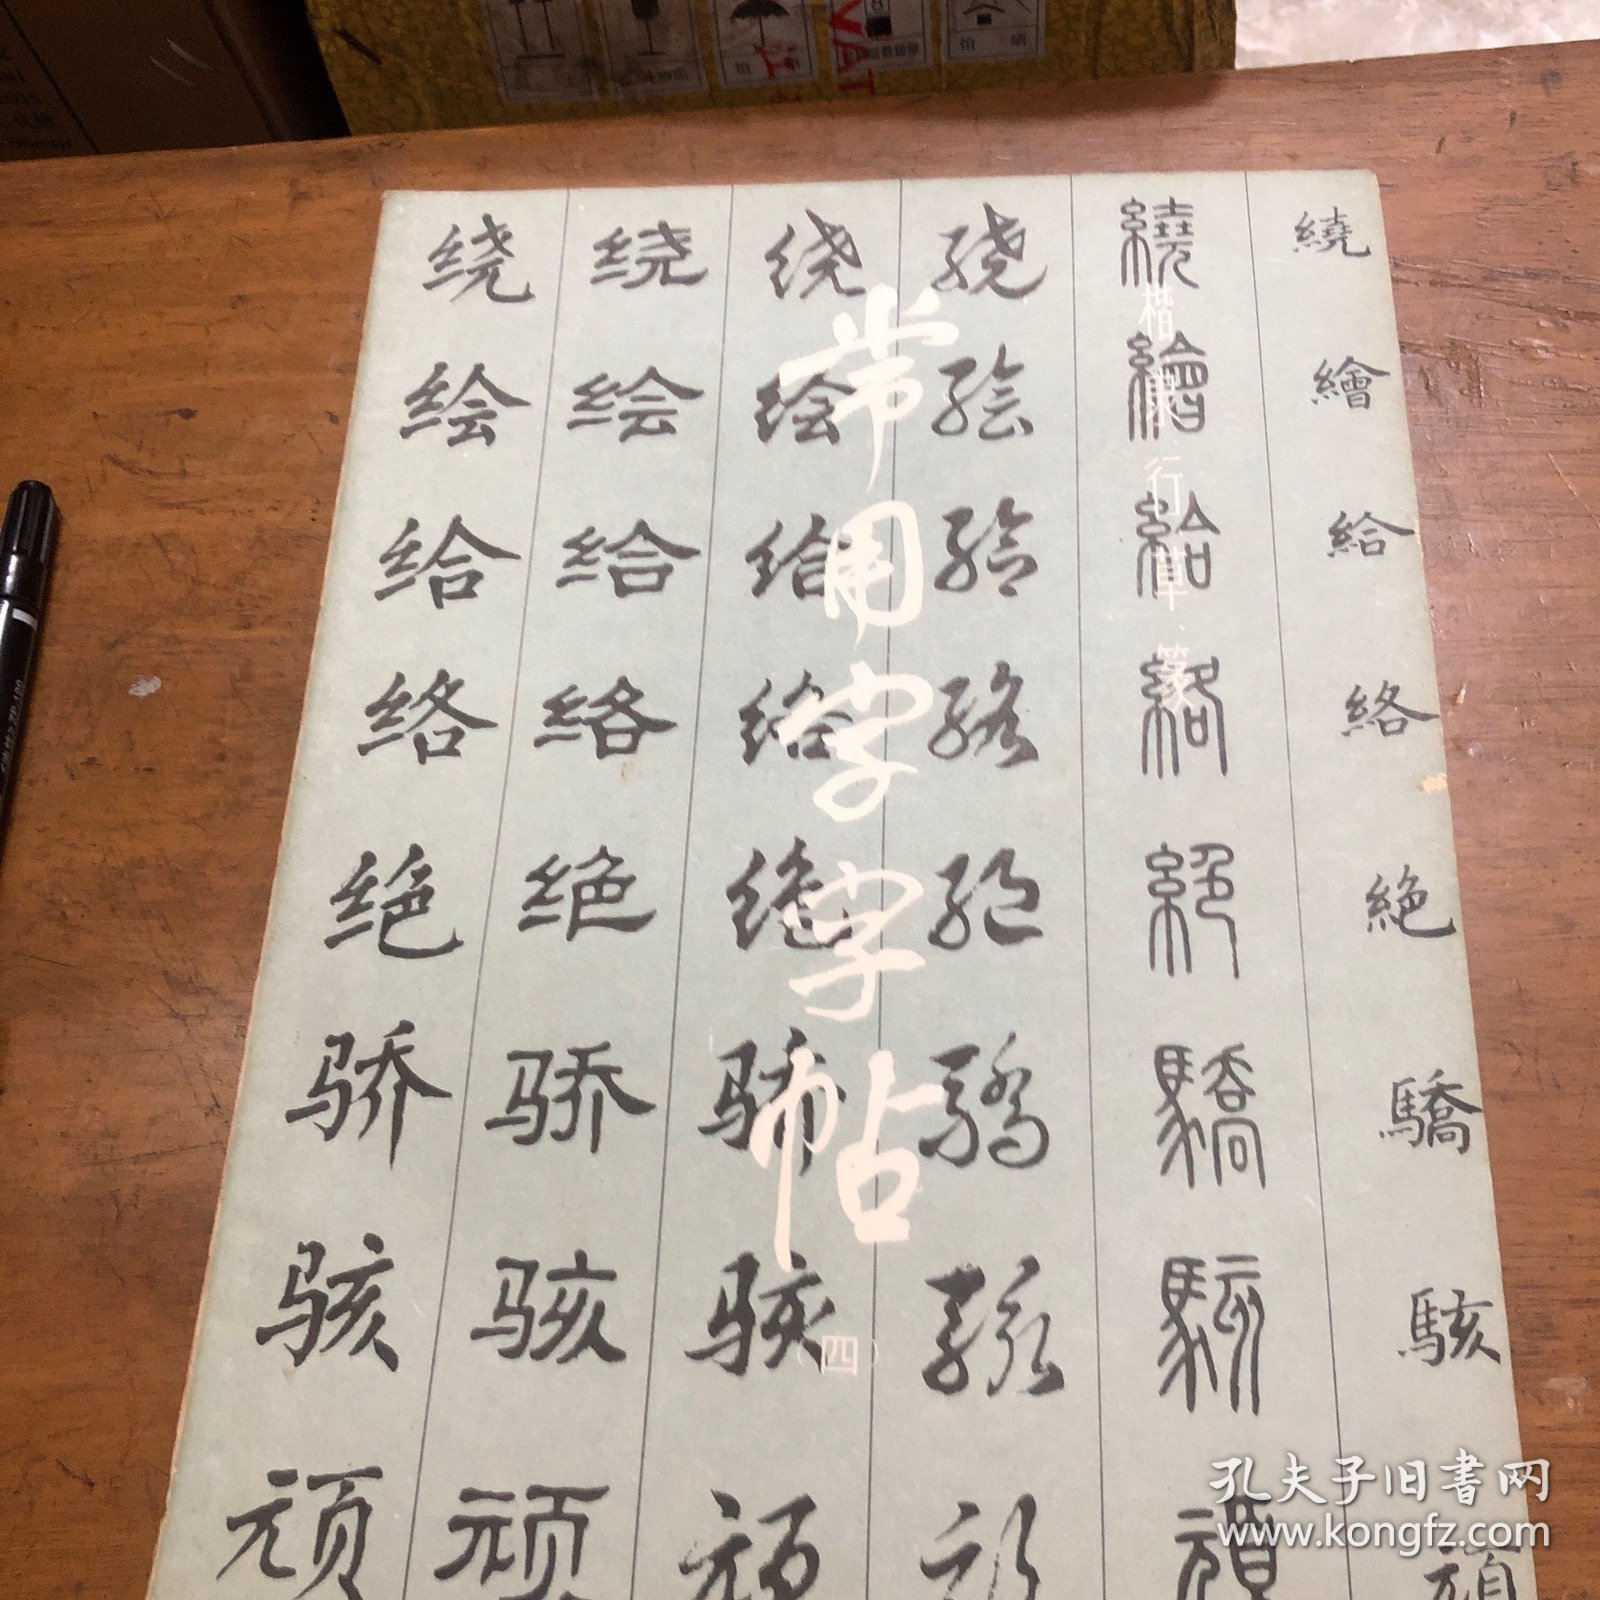 怕 晒
常用字字帖
(四)
楷 隶 行 草 篆
绕 绕 绕 绕 繞 繞
绘 绘 绘 绘 繪 繪
给 给 给 给 給 給
络 络 络 络 絡 絡
绝 绝 绝 绝 絕 絶
骄 骄 骄 驕 驕 驕
骇 骇 骇 骇 駭 駭
顽 顽 顽 顽 頑 頑
孔夫子旧书网
www.kongfz.com